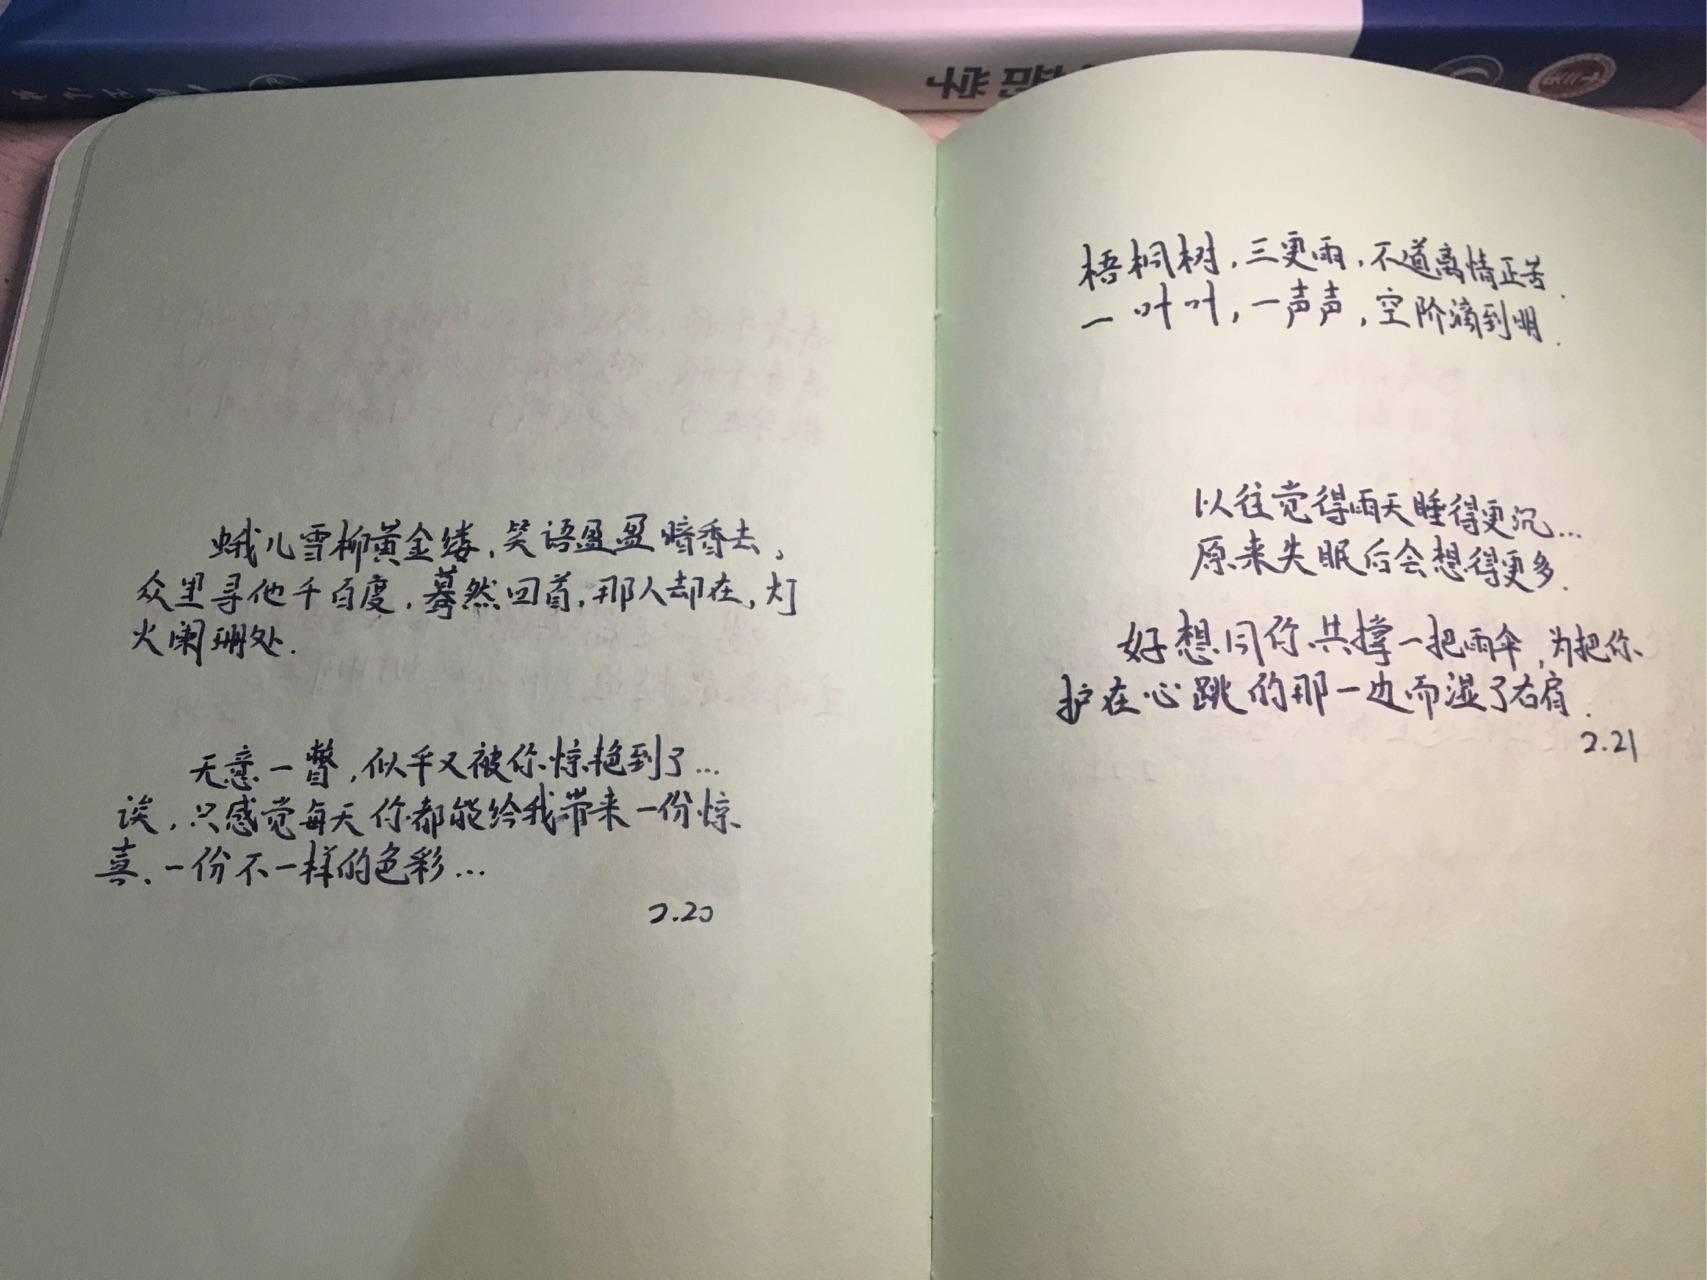 蛾儿雪柳黄金缕，笑语盈盈暗香去，
众里寻他千百度，蓦然回首，那人却在，灯
火阑珊处.
无意一瞥，似乎又被你惊艳到了...
诶，只感觉每天你都能给我带来一份惊
喜、一份不一样的色彩...
2.20
梧桐树，三更雨，不道离情正苦.
一叶叶，一声声，空阶滴到明.
以往觉得雨天睡得更沉...
原来失眠后会想得更多.
好想同你共撑一把雨伞，为把你
护在心跳的那一边而湿了右肩.
2.21